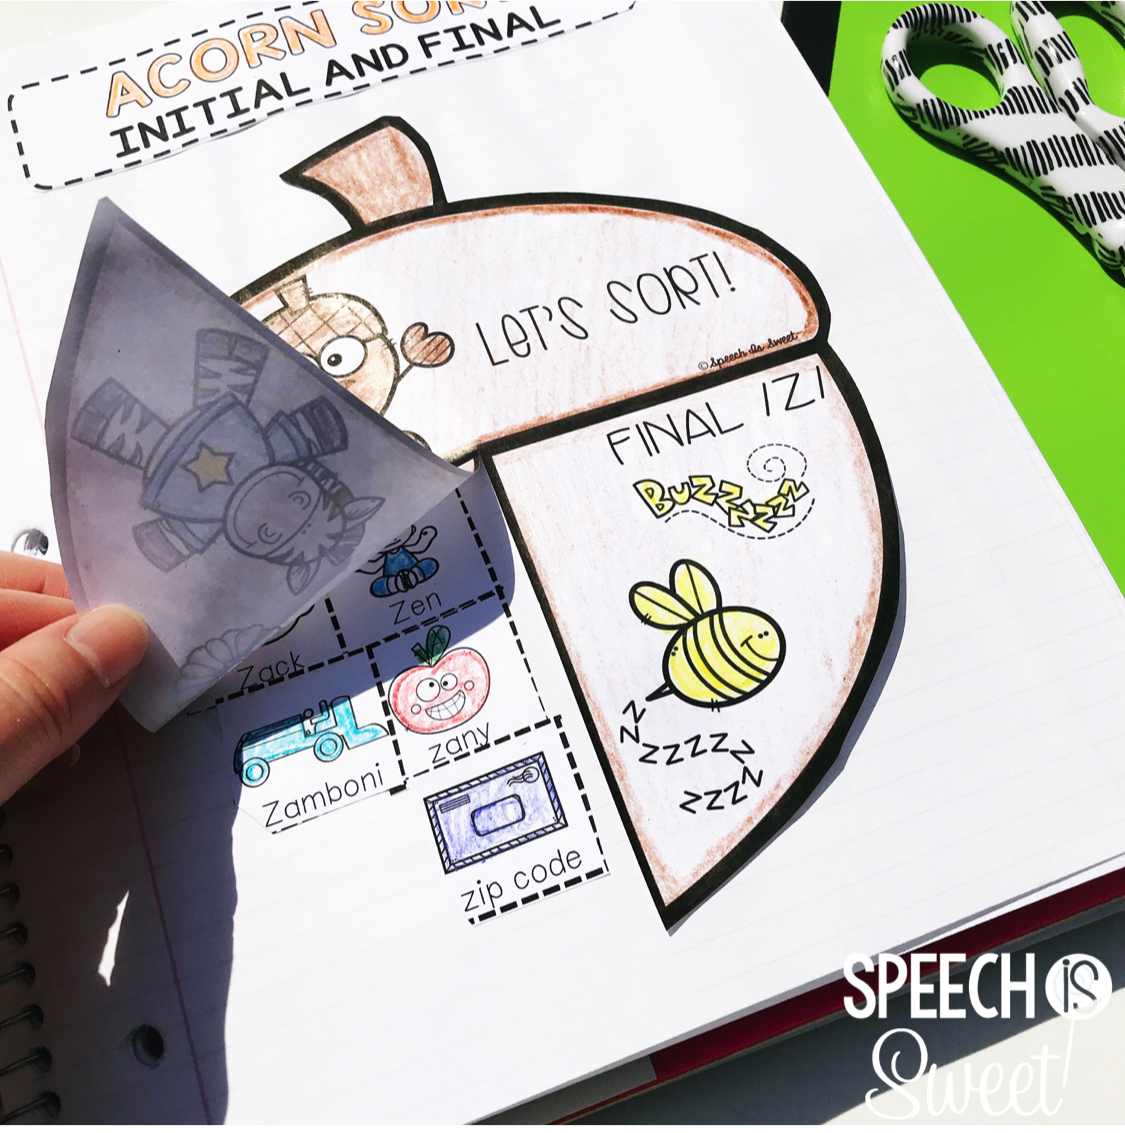 ACORN SORT
INITIAL AND FINAL
LET'S SORT!
©Speech Is Sweet
FINAL /Z/
BUZZZZZZZ
Zen
Zack
zany
Zamboni
zip code
ZZ
ZZZZZZ
ZZZZZ
SPEECH is
Sweet!